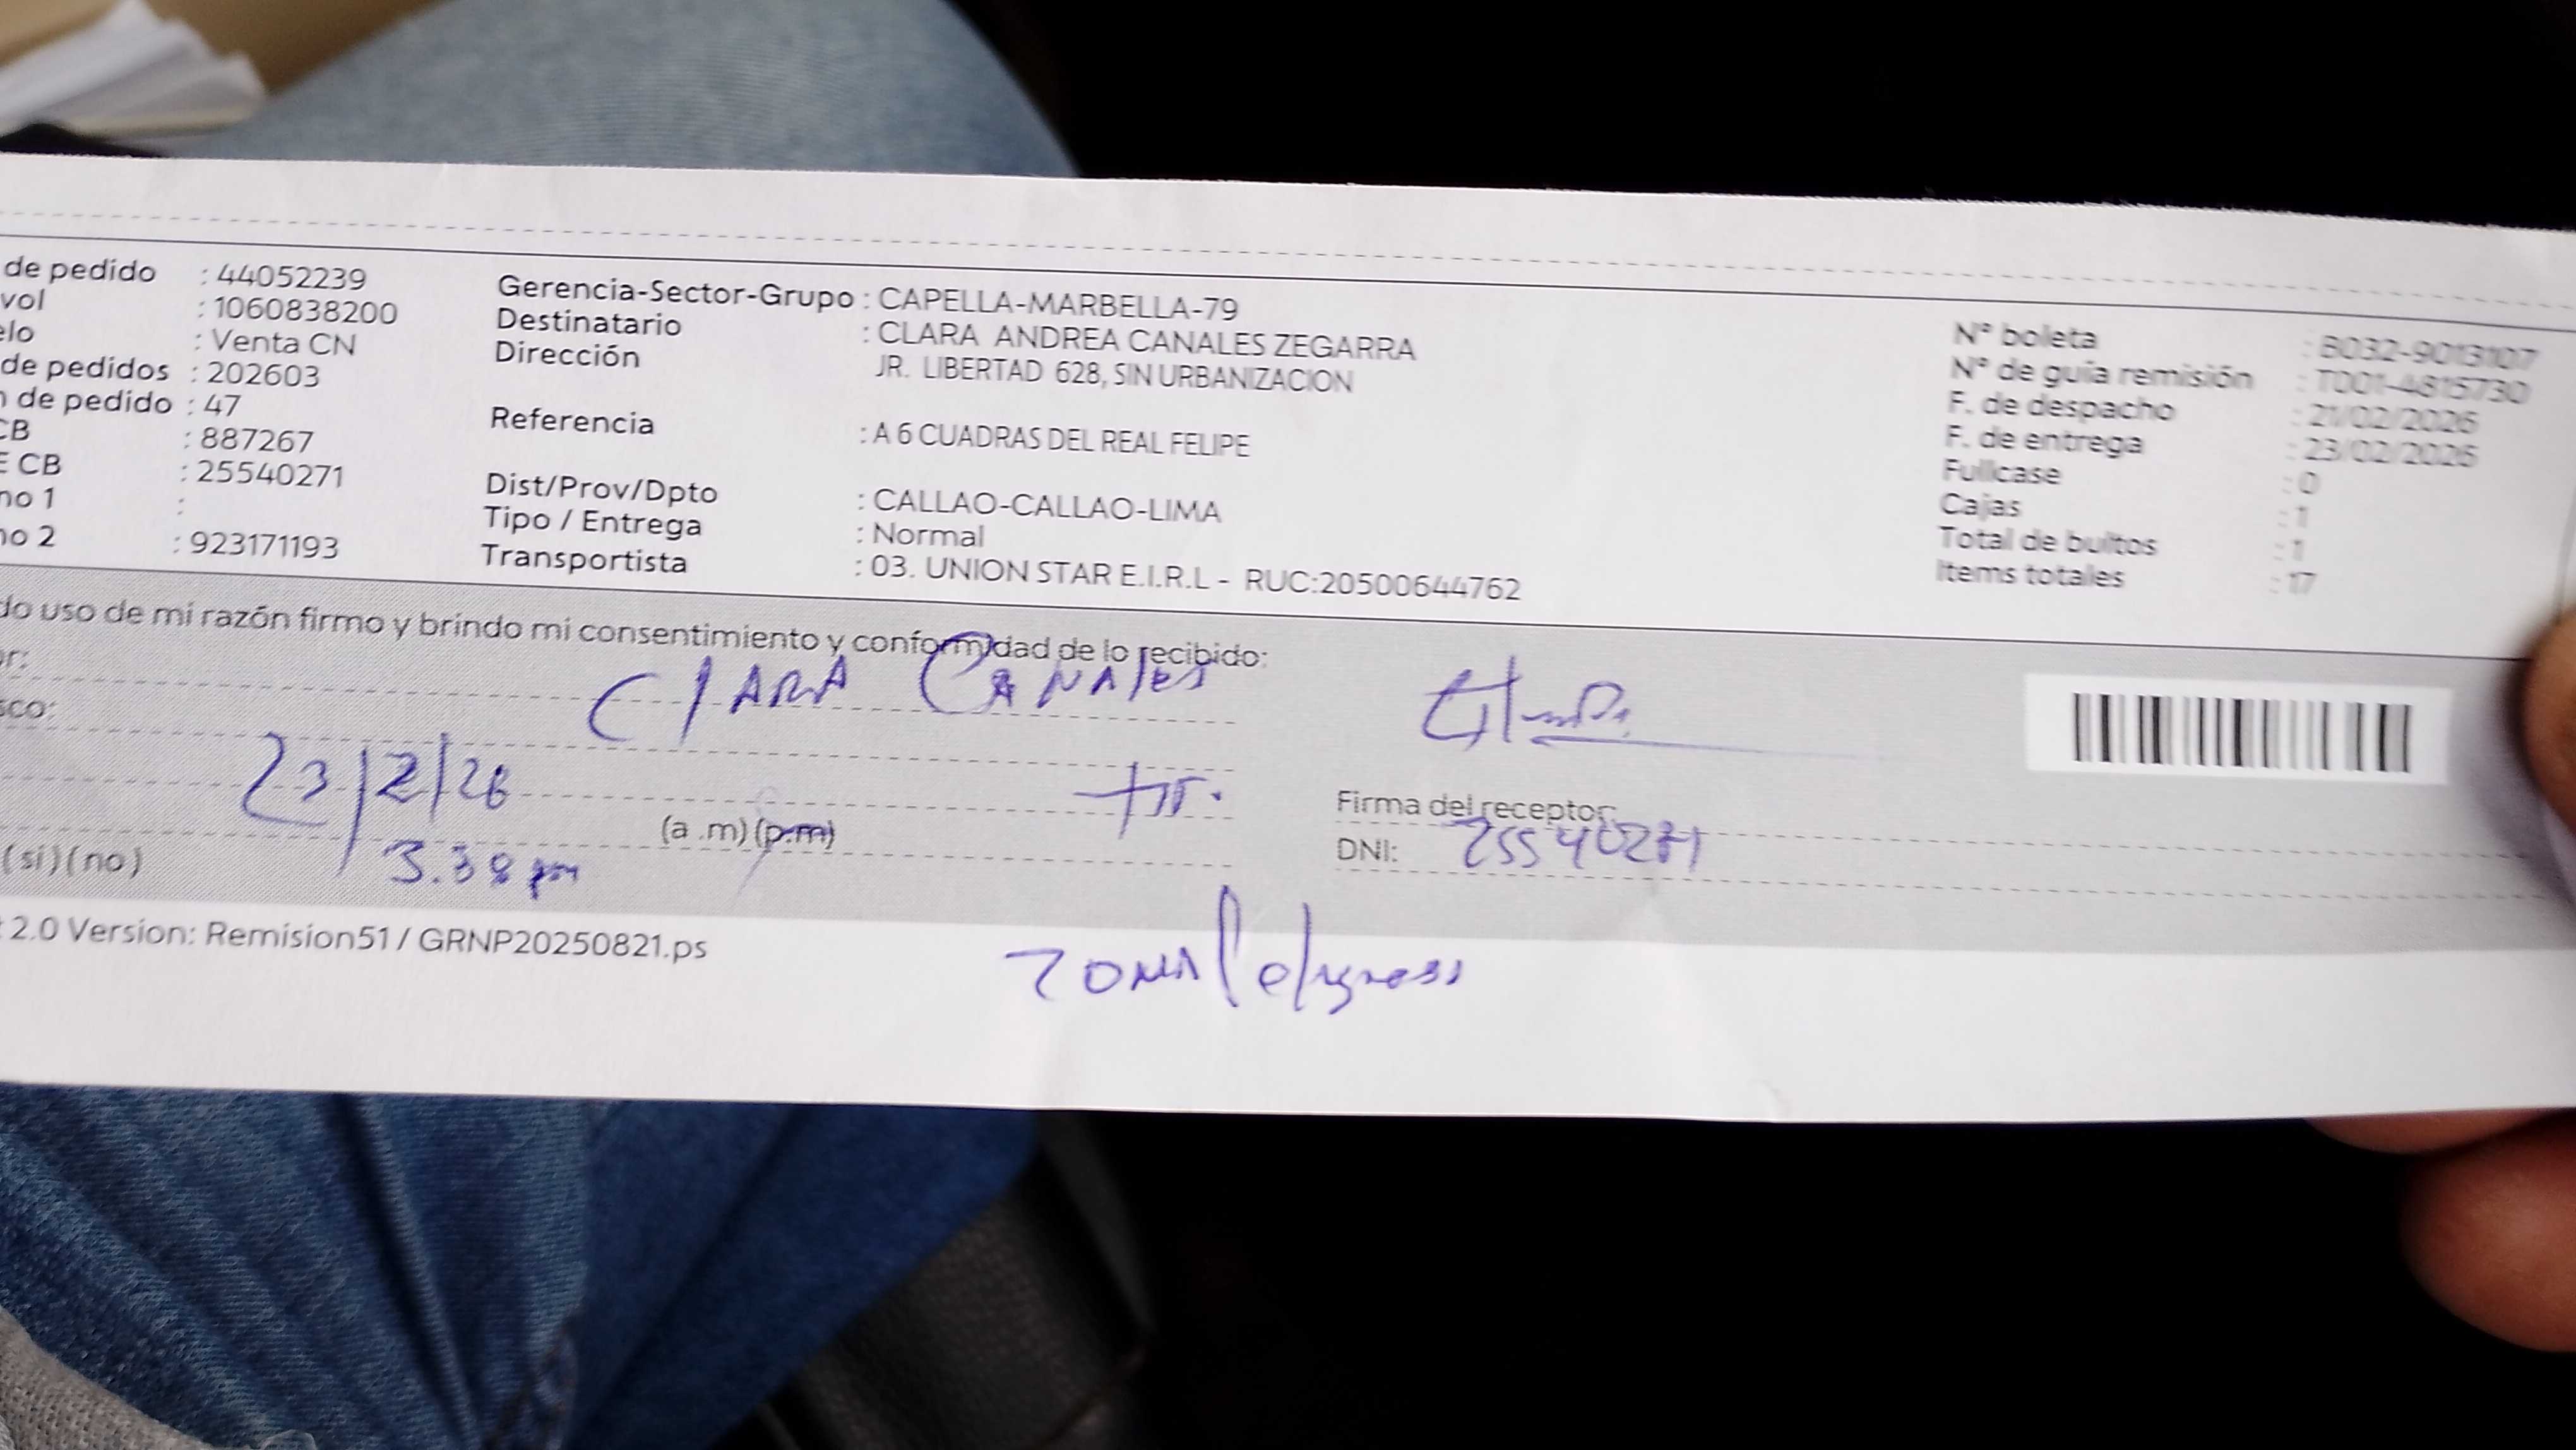 de pedido : 44052239
vol : 1060838200
elo : Venta CN
de pedidos : 202603
n de pedido : 47
CB : 887267
E CB : 25540271
no 1 :
no 2 : 923171193
Gerencia-Sector-Grupo : CAPELLA-MARBELLA-79
Destinatario : CLARA ANDREA CANALES ZEGARRA
Dirección JR. LIBERTAD 628, SIN URBANIZACION
Referencia : A 6 CUADRAS DEL REAL FELIPE
Dist/Prov/Dpto : CALLAO-CALLAO-LIMA
Tipo / Entrega : Normal
Transportista : 03. UNION STAR E.I.R.L - RUC:20500644762
N° boleta : B032-9013107
N° de guía remisión : T001-4815730
F. de despacho : 21/02/2026
F. de entrega : 23/02/2026
Fullcase : 0
Cajas : 1
Total de bultos : 1
Items totales : 17
do uso de mi razón firmo y brindo mi consentimiento y conformidad de lo recibido:
or: Clara Canales
sco:
23/2/26
(a .m) (p.m)
(si) (no) 3.38 pm
Firma del receptor:
DNI: 25540271
2.0 Version: Remision51 / GRNP20250821.ps
Zona